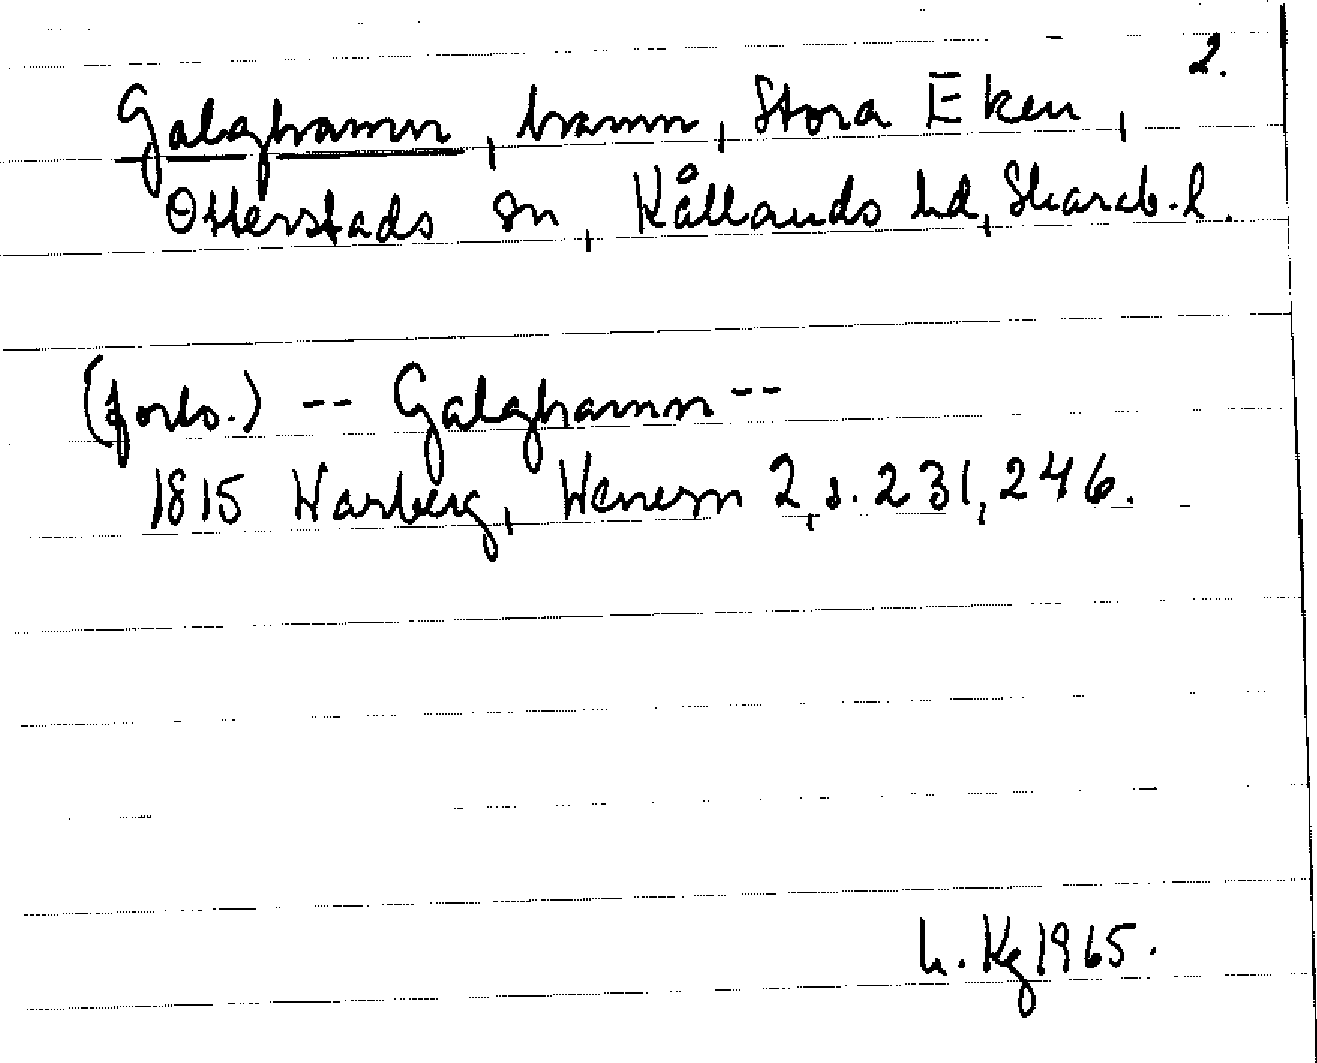 2.
Galghamn, hamn, Stora Eken,
Otterstads sn, Kållands hd, Skarab. l.
(forts.) -- Galghamn --
1815 Warberg, Wenern 2, s. 231, 246.
h. Kg 1965.